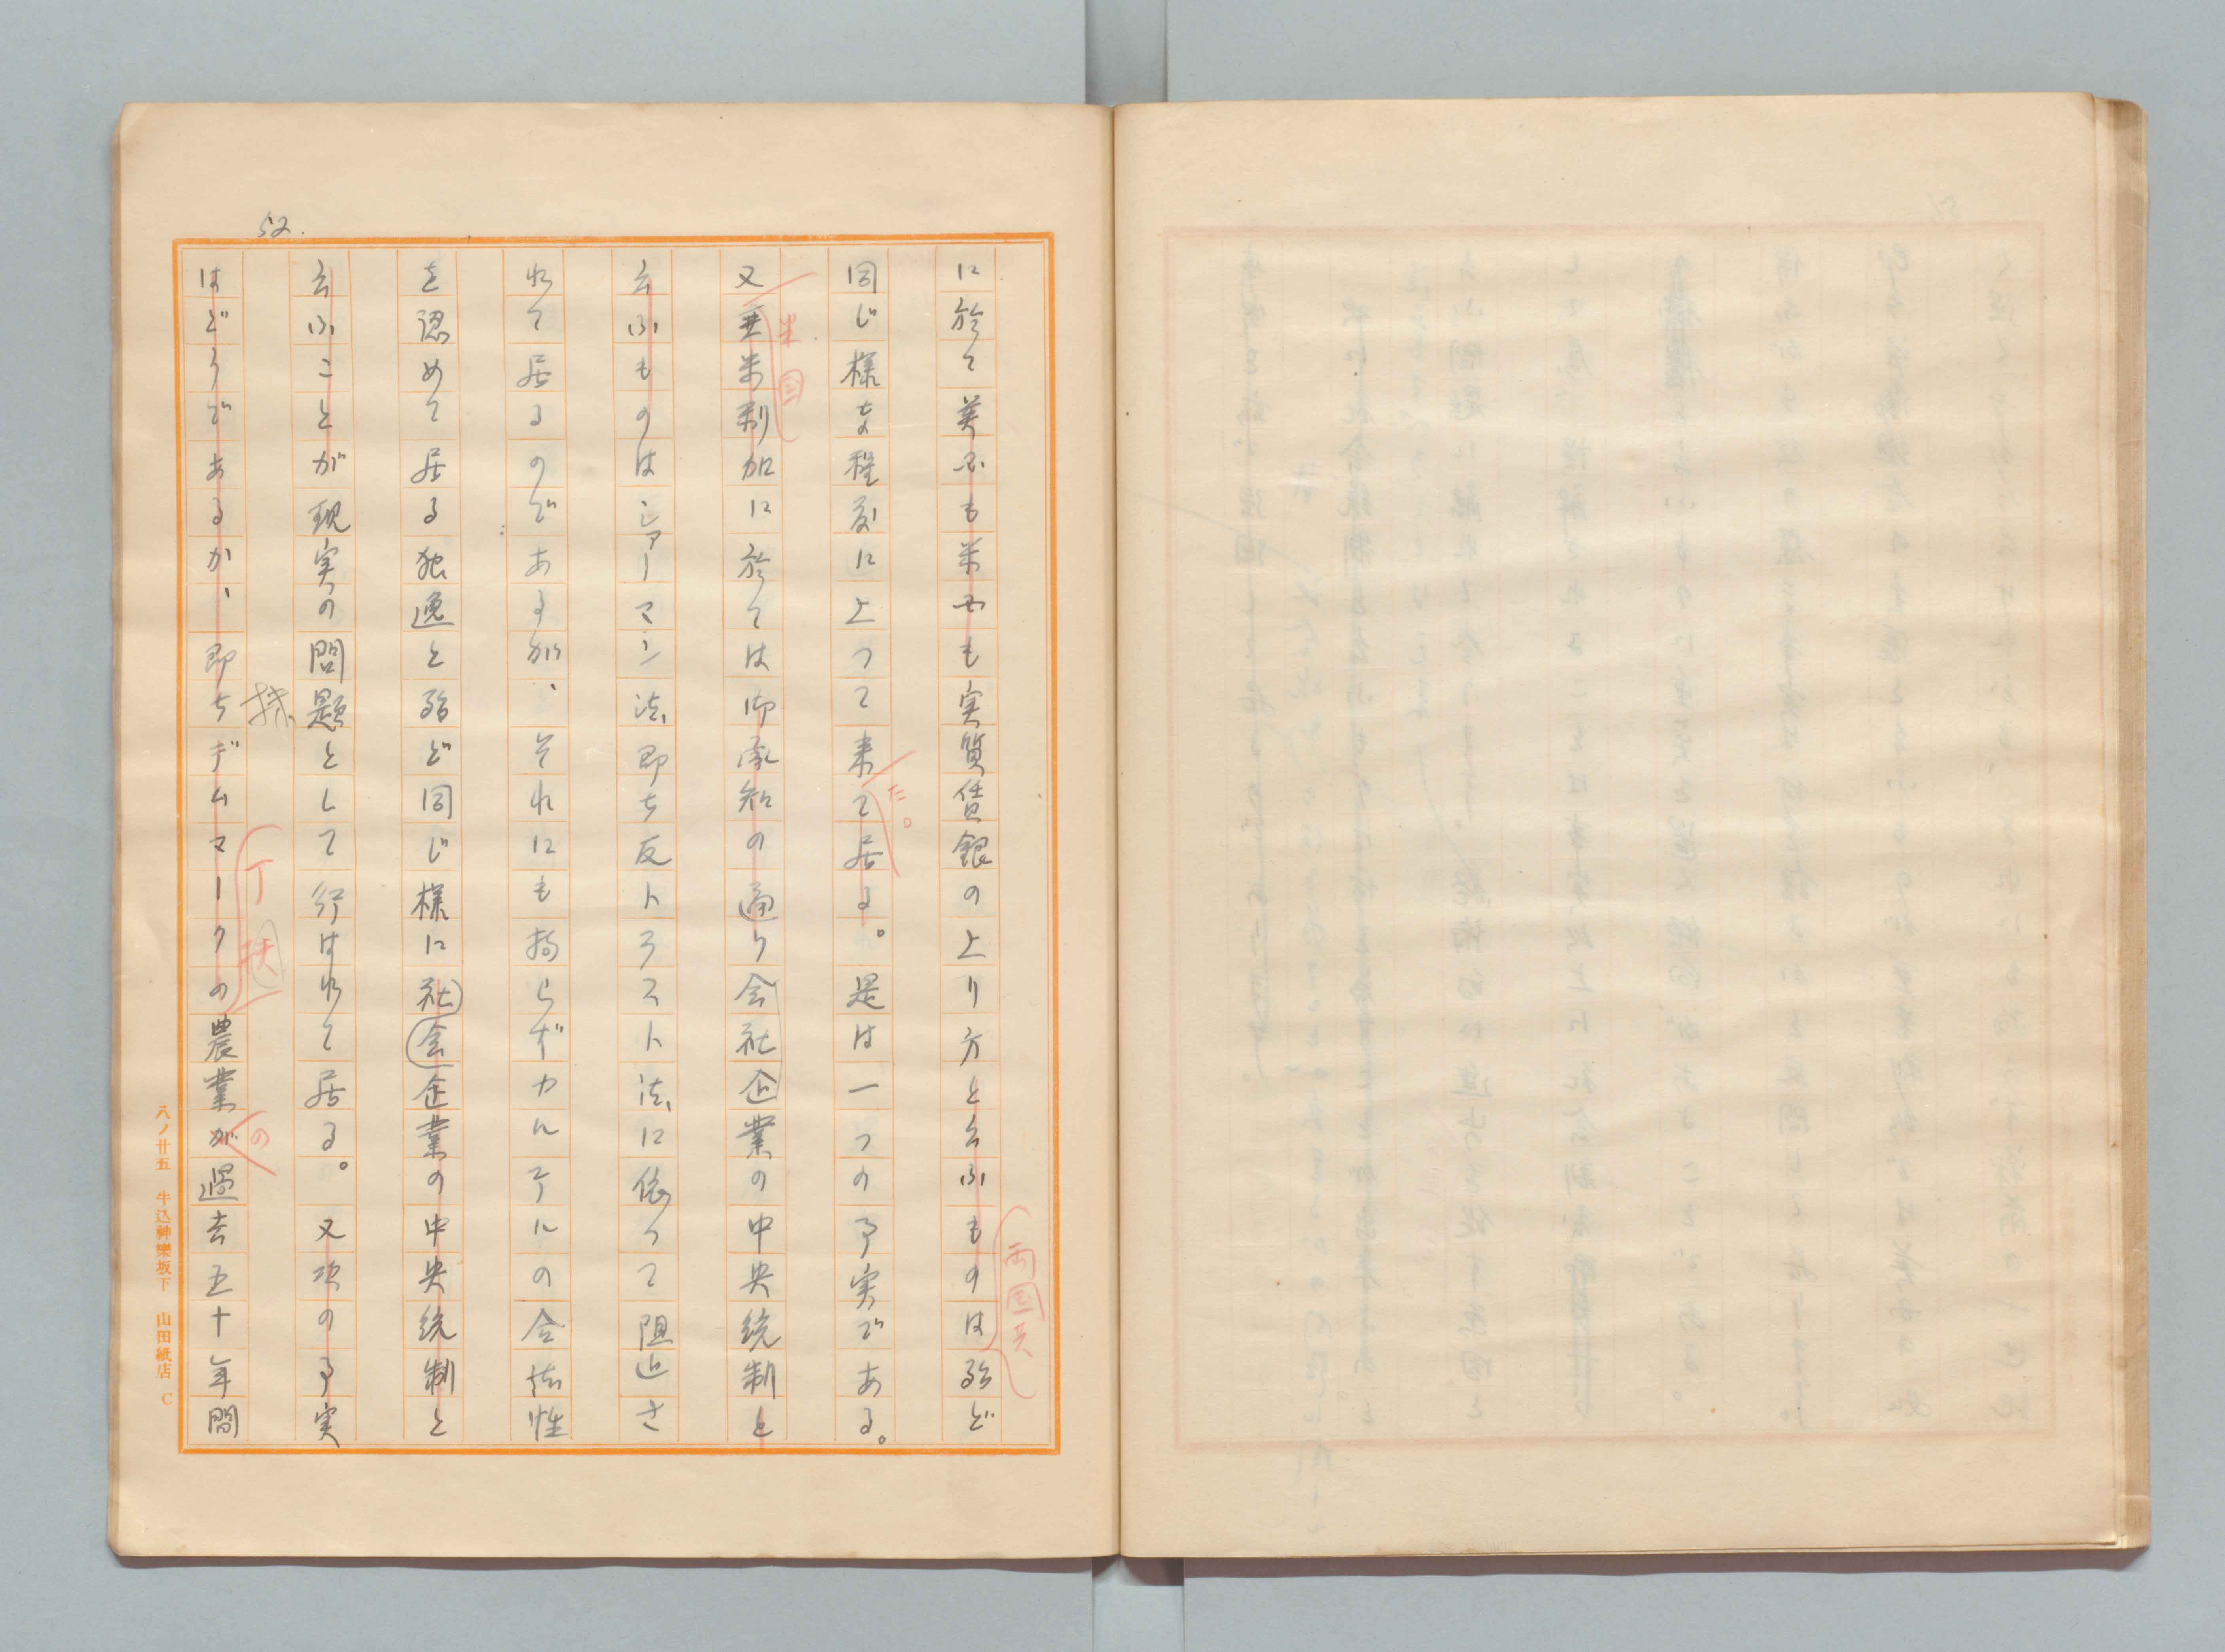 52.
に於て英国も米国も実質賃銀の上り方と云ふものは殆ど
両国共
同じ様な程度に上つて来て居る。是は一つの事実である。
た。
又亜米利加に於ては御承知の通り会社企業の中央統制と
米国
云ふものはシアーマン法即ち反トラスト法に依つて阻止さ
れて居るのであるが、それにも拘らずカルテルの合法性
を認めて居る独逸と殆ど同じ様に社会企業の中央統制と
云ふことが現実の問題として行はれて居る。又次の事実
丁抹
の
はどうであるか、即ちデムマークの農業が過去五十年間
八ノ廿五 牛込神樂坂下 山田紙店 C